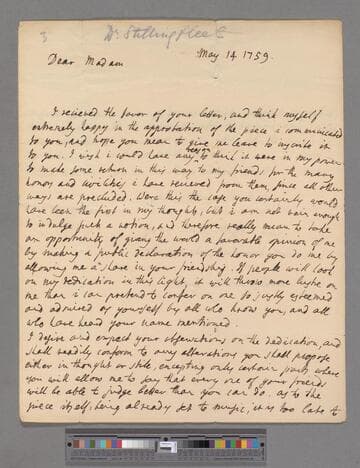 3
Dr Stillingfleet
May 14 1759.
Dear Madam
I recieved the favor of your letter, and think myself
extremely happy in the approbation of the piece i communicated
to you; and hope you mean to give me leave to inscribe it
to you. I wish i could have any reason to think it were in my power
to make some return in this way to my friends for the many
honors and civilities i have received from them, since all other
ways are precluded. Were this the case you certainly would
have been the first in my thoughts, but i am not vain enough
to indulge such a notion, and therefore really mean to take
an opportunity of giving the world a favorable opinion of me
by making a public declaration of the honor you do me by
allowing me a share in your friendship. If people will look
on my dedication in this light, it will throw more lustre on
me than i can pretend to confer on one so justly esteemed
and admired as yourself by all who know you, and all
who have heard your name mentioned.
I desire and expect your observations on the dedication, and
shall readily conform to any alterations you shall propose
either in thought or stile, excepting only certain parts where
you will allow me to say that every one of your friends
will be able to judge better than you can do. as to the
piece itself, being already set to music, it is too late to